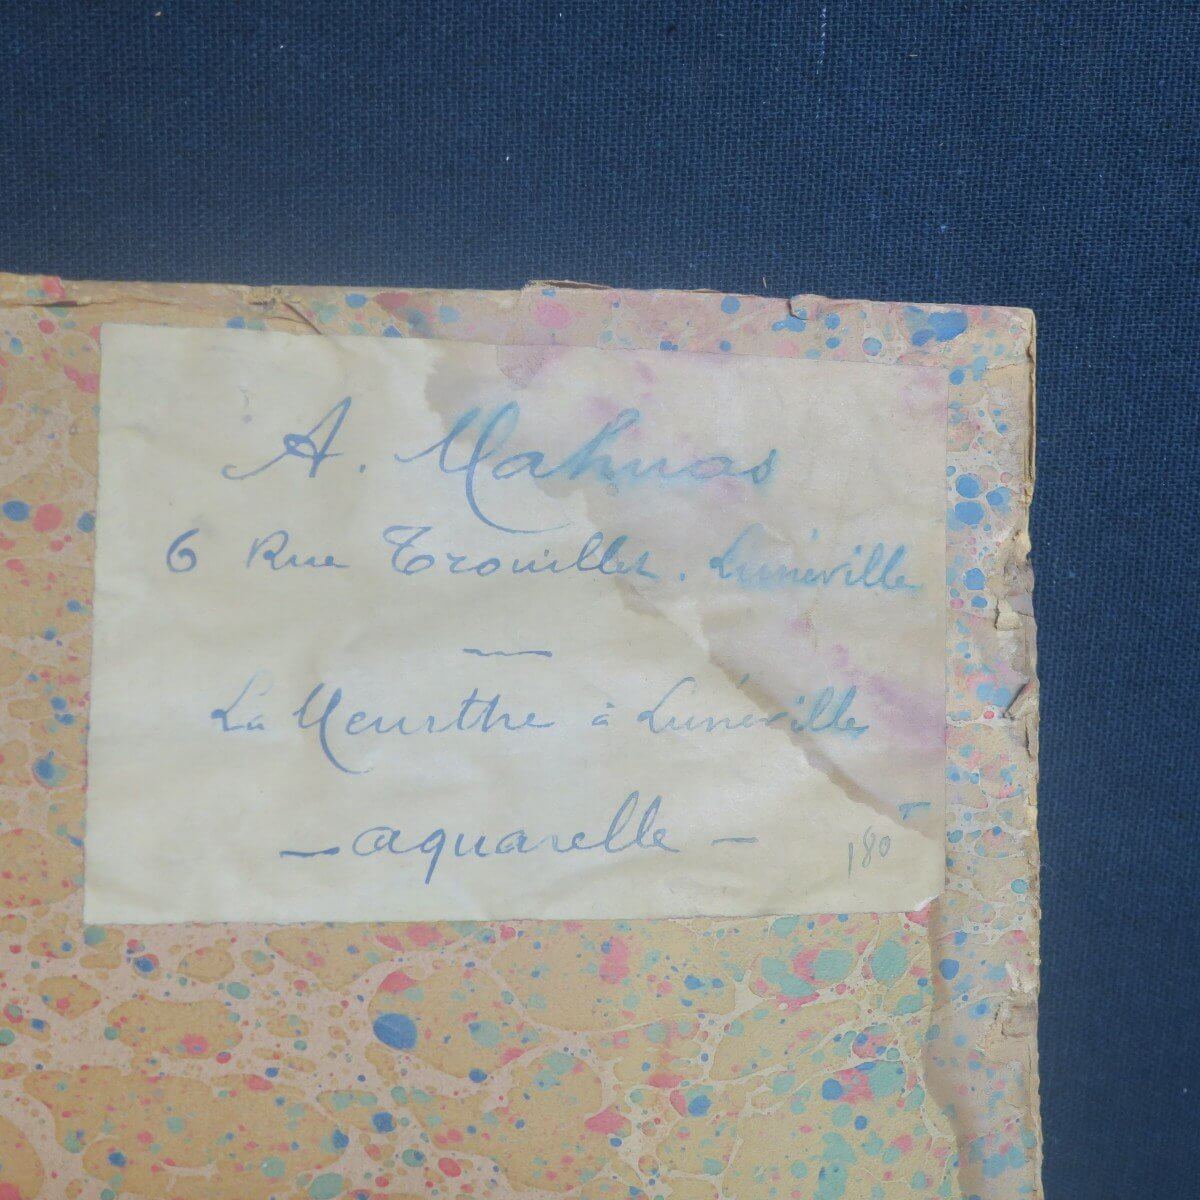 A. Mahuas
6 Rue Trouillet. Lunéville
—
La Meurthe à Lunéville
— aquarelle —
180